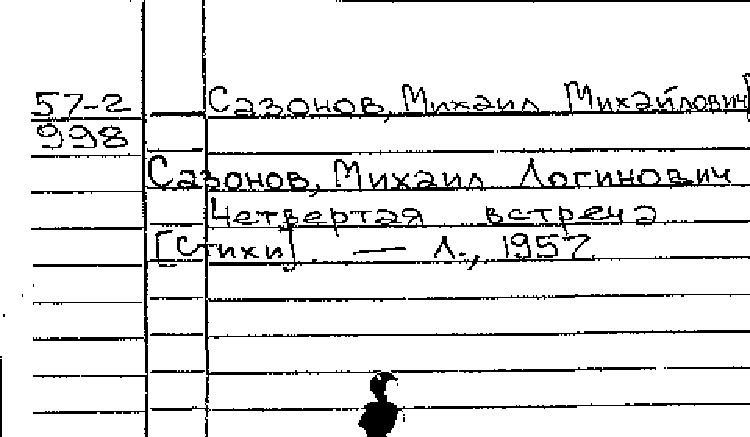 57-2 Сазонов, Михаил Михайлович
998
Сазонов, Михаил Логинович
Четвертая встреча
[Стихи]. — Л., 1957